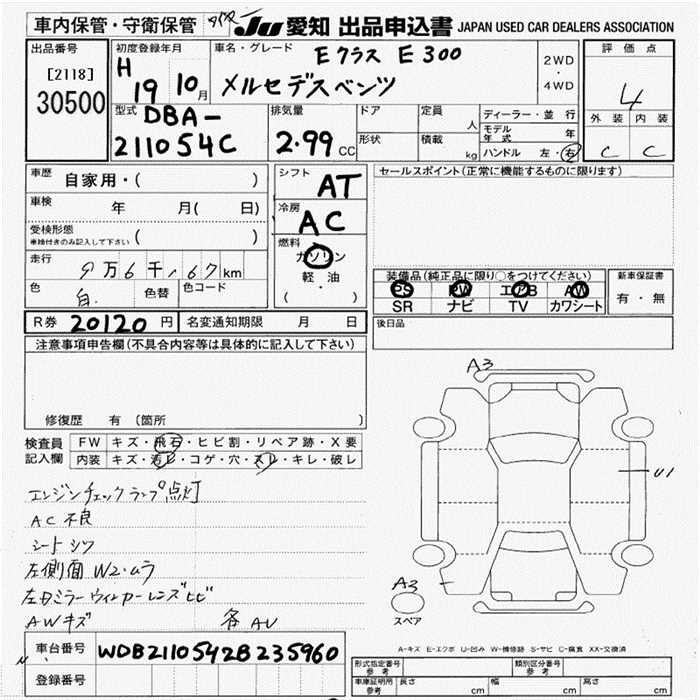 車内保管・守衛保管 JU 愛知 出品申込書 JAPAN USED CAR DEALERS ASSOCIATION
出品番号
[2118]
30500
初度登録年月
H 19 10月
車名・グレード
Eクラス E300
メルセデスベンツ
2WD
・
4WD
評価点
4
外装 内装
C C
型式
DBA-
211054C
排気量
2.99 CC
ドア
形状
定員 人
積載 kg
ディーラー・並行
モデル年式 年
ハンドル 左・右
車歴 自家用・( )
車検 年 月( 日)
受検形態
車検付きのみ記入して下さい ( )
走行 9万6千,67km
色 白 色替 色コード
シフト AT
冷房 AC
燃料
ガソリン
軽・油
( ・ )
セールスポイント(正常に機能するものに限ります)
装備品(純正品に限り○をつけてください)
PS PW エアB AW
SR ナビ TV カワシート
新車保証書
有・無
R券 20120 円 名変通知期限 月 日
後日品
注意事項申告欄(不具合内容等は具体的に記入して下さい)
修復歴 有 (箇所 )
検査員
記入欄
FW キズ・飛石・ヒビ割・リペア跡・X要
内装 キズ・汚レ・コゲ・穴・スレ・キレ・破レ
エンジンチェックランプ点灯
AC不良
シートシワ
左側面 W2・ムラ
左Dミラーウィンカーレンズヒビ
AWキズ 各AU
A3
U1
A3
スペア
A-キズ E-エクボ U-凹み W-補修跡 S-サビ C-腐食 XX-交換済
車台番号 WDB2110542B235960
登録番号
形式指定番号
参考
類別区分番号
参考
車庫証明用
参考
長さ cm 幅 cm 高さ cm